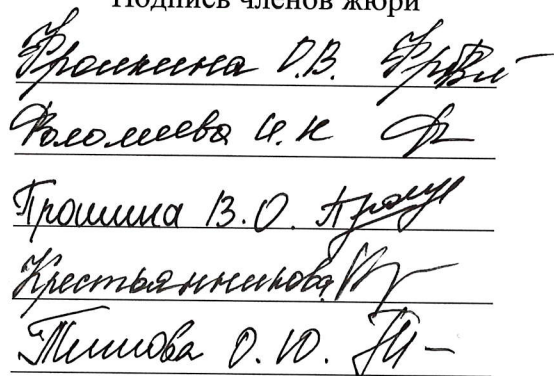 Подпись членов жюри
Фролкина О.В.
Фоломеева И.К
Прошина В.О.
Крестьянникова
Тишова О.Ю.